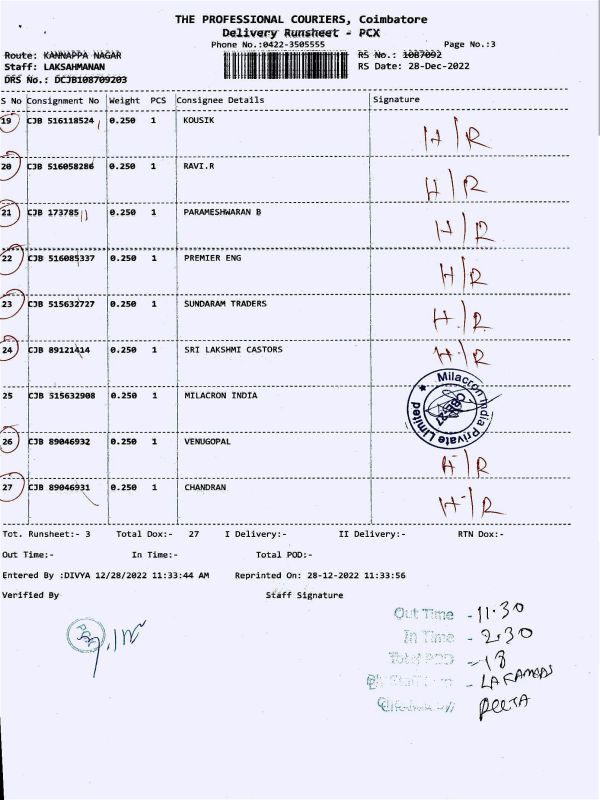 THE PROFESSIONAL COURIERS, Coimbatore
Delivery Runsheet - PCX
Phone No.:0422-3505555 Page No.:3
Route: KANNAPPA NAGAR RS No.: 1087092
Staff: LAKSAHMANAN RS Date: 28-Dec-2022
DRS No.: DCJB108709203
S No Consignment No Weight PCS Consignee Details Signature
19 CJB 516118524 0.250 1 KOUSIK H/R
20 CJB 516058286 0.250 1 RAVI.R H/R
21 CJB 173785 0.250 1 PARAMESHWARAN B H/R
22 CJB 516085337 0.250 1 PREMIER ENG H/R
23 CJB 515632727 0.250 1 SUNDARAM TRADERS H/R
24 CJB 89121414 0.250 1 SRI LAKSHMI CASTORS H/R
25 CJB 515632908 0.250 1 MILACRON INDIA Milacron India Private Limited
26 CJB 89046932 0.250 1 VENUGOPAL H/R
27 CJB 89046931 0.250 1 CHANDRAN H/R
Tot. Runsheet:- 3 Total Dox:- 27 I Delivery:- II Delivery:- RTN Dox:-
Out Time:- In Time:- Total POD:-
Entered By :DIVYA 12/28/2022 11:33:44 AM Reprinted On: 28-12-2022 11:33:56
Verified By Staff Signature
Out Time - 11.30
In Time - 2.30
Total POD - 18